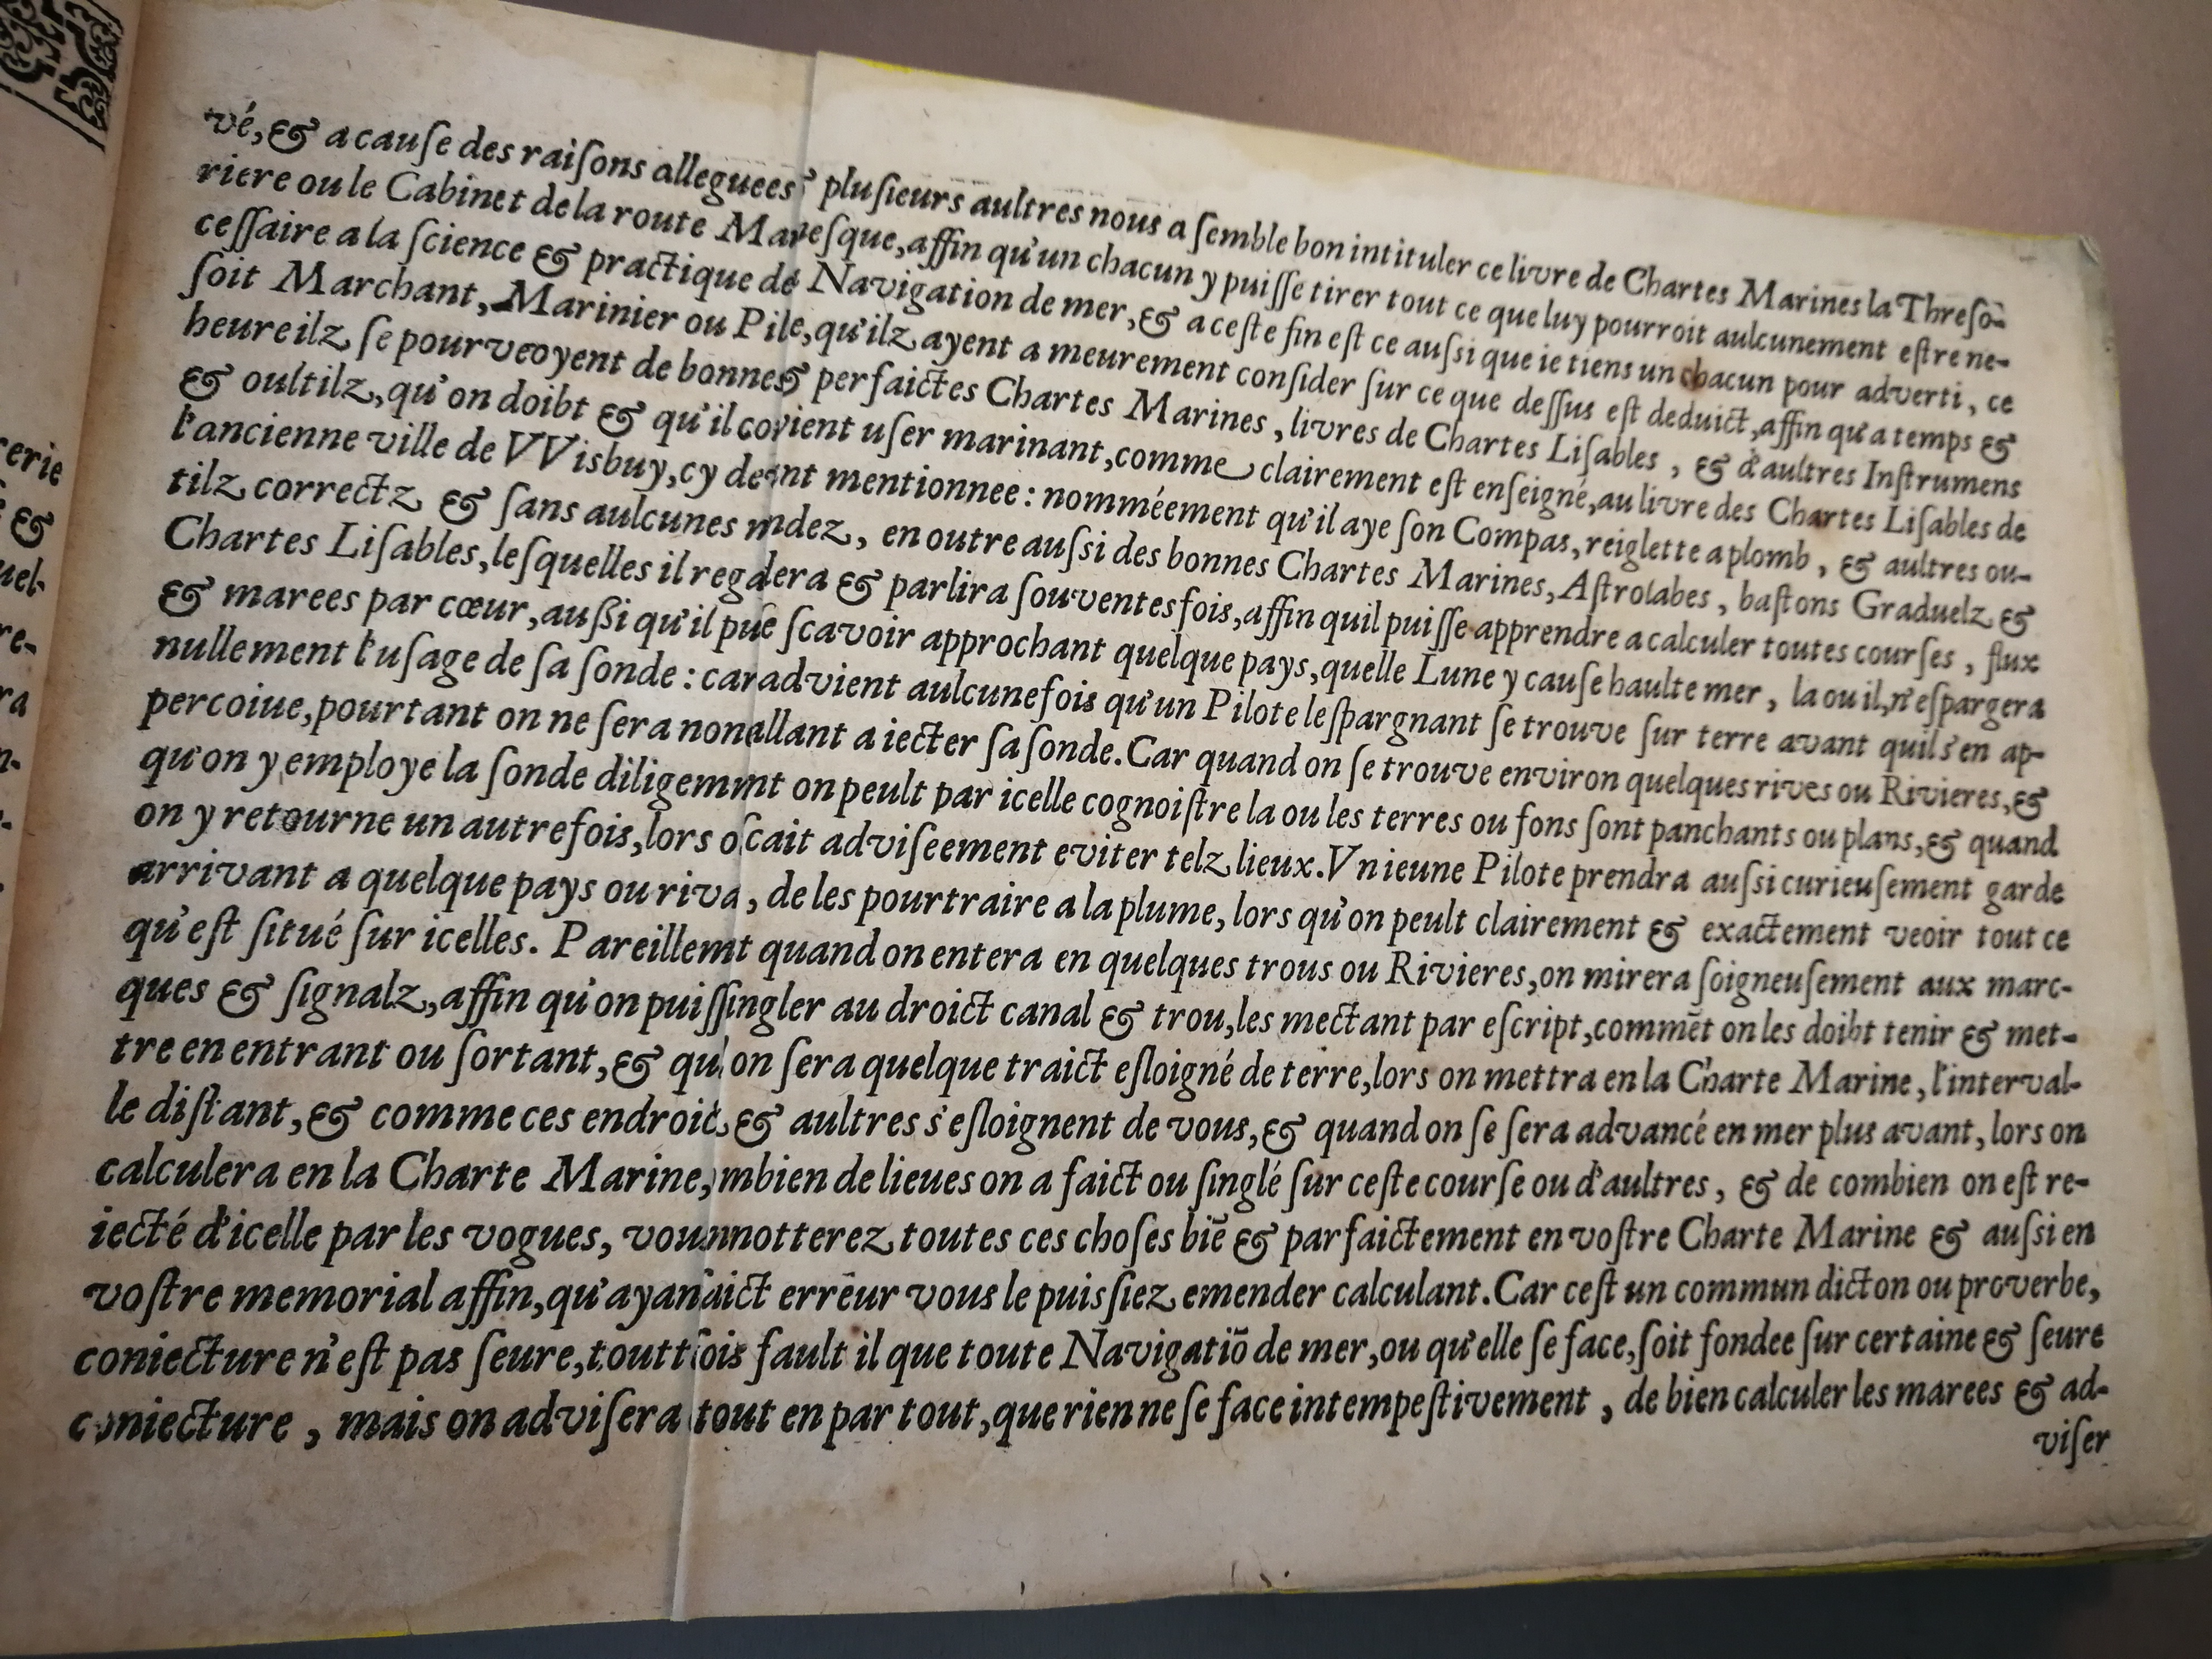 vé, & a cause des raiſons alleguees & pluſieurs aultres nous a ſemble bon intituler ce livre de Chartes Marines la Threſo-
riere ou le Cabinet de la route Mareſque, affin qu'un chacun y puiſſe tirer tout ce que luy pourroit aulcunement eſtre ne-
ceſſaire a la ſcience & practique de Navigation de mer, & a ceſte fin eſt ce auſsi que ie tiens un chacun pour adverti, ce
ſoit Marchant, Marinier ou Pile, qu'ilz ayent a meurement conſider ſur ce que deſſus eſt deduict, affin qu'a temps &
heure ilz ſe pourveoyent de bonnes & perfaictes Chartes Marines, livres de Chartes Liſables, & d'aultres Inſtrumens
& oultilz, qu'on doibt & qu'il covient uſer marinant, comme clairement eſt enſeigné, au livre des Chartes Liſables de
l'ancienne ville de VVisbuy, cy deant mentionnee: nomméement qu'il aye ſon Compas, reiglette a plomb, & aultres ou-
tilz correctz & ſans aulcunes mdez, en outre auſsi des bonnes Chartes Marines, Aſtrolabes, baſtons Graduelz &
Chartes Liſables, leſquelles il regadera & parlira ſouventesfois, affin quil puiſſe apprendre a calculer toutes courſes, flux
& marees par cœur, auſsi qu'il puſe ſcavoir approchant quelque pays, quelle Lune y cauſe haulte mer, la ou il, n'eſpargera
nullement l'uſage de ſa ſonde: car advient aulcunefois qu'un Pilote leſpargnant ſe trouve ſur terre avant quil s'en ap-
percoiue, pourtant on ne ſera nonallant a iecter ſa ſonde. Car quand on ſe trouve environ quelques rives ou Rivieres, &
qu'on y employe la ſonde diligemmt on peult par icelle cognoiſtre la ou les terres ou fons ſont panchants ou plans, & quand
on y retourne un autrefois, lors oſcait adviſeement eviter telz lieux. Vn ieune Pilote prendra auſsi curieuſement garde
arrivant a quelque pays ou riva, de les pourtraire a la plume, lors qu'on peult clairement & exactement veoir tout ce
qu'eſt ſitué ſur icelles. Pareillemt quand on entera en quelques trous ou Rivieres, on mirera ſoigneuſement aux marc-
ques & ſignalz, affin qu'on puiſſingler au droict canal & trou, les mectant par eſcript, commēt on les doibt tenir & met-
tre en entrant ou ſortant, & qu on ſera quelque traict eſloigné de terre, lors on mettra en la Charte Marine, l'interval-
le diſtant, & comme ces endroic, & aultres s'eſloignent de vous, & quand on ſe ſera advancé en mer plus avant, lors on
calculera en la Charte Marine, mbien de lieues on a faict ou ſinglé ſur ceſte courſe ou d'aultres, & de combien on eſt re-
iecté d'icelle par les vogues, vounnotterez toutes ces choſes biē & parfaictement en voſtre Charte Marine & auſsi en
voſtre memorial affin, qu'ayanaict erreur vous le puisſiez emender calculant. Car ceſt un commun dicton ou proverbe,
coniecture n'eſt pas ſeure, touttſois fault il que toute Navigatiō de mer, ou qu'elle ſe face, ſoit fondee ſur certaine & ſeure
coniecture, mais on adviſera tout en par tout, que rien ne ſe face intempeſtivement, de bien calculer les marees & ad-
viſer
erie
&
uel-
re-
ra